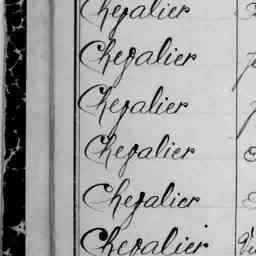 Chevalier
Chevalier
Chevalier
Chevalier
Chevalier
Chevalier